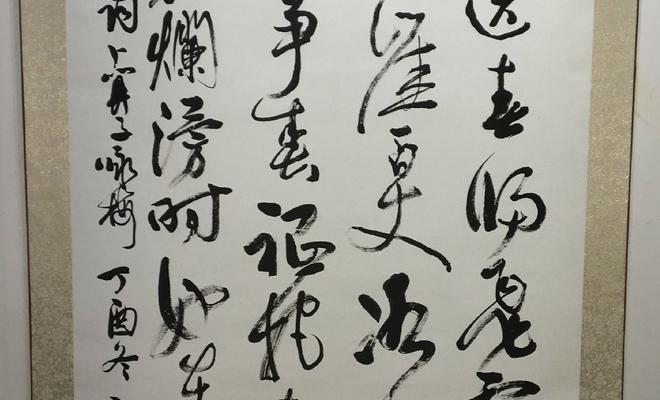 送春歸飛
崖百丈冰
争春祗把
爛漫时她在
词卜算子咏梅 丁酉冬